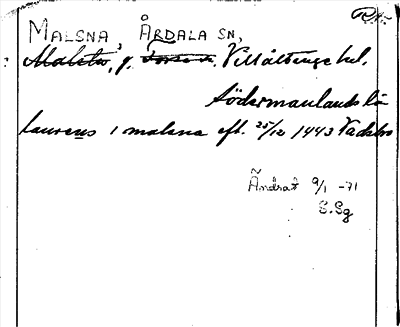 Rk.
MALSNA, ÅRDALA SN,
Malsta, g. Torsåker. Villåttinge hd.
Södermanlands län
laurens i malsna eft. 25/12 1443 Vadstena
Ändrat 9/1 -71
S.Sg